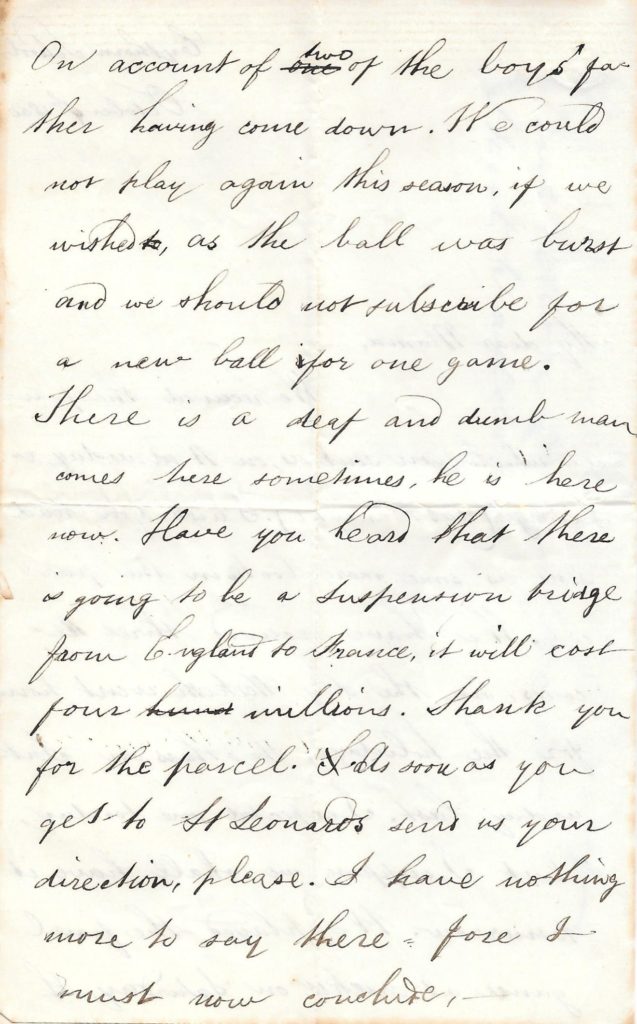 On account of one two of the boys' fa-
ther having come down. We could
not play again this season, if we
wished to, as the ball was burst
and we should not subscribe for
a new ball for one game.
There is a deaf and dumb man
comes here sometimes, he is here
now. Have you heard that there
is going to be a suspension bridge
from England to France, it will cost
four hund millions. Thank you
for the parcel. As soon as you
get to St Leonards send us your
direction, please. I have nothing
more to say there = fore I
must now conclude, —